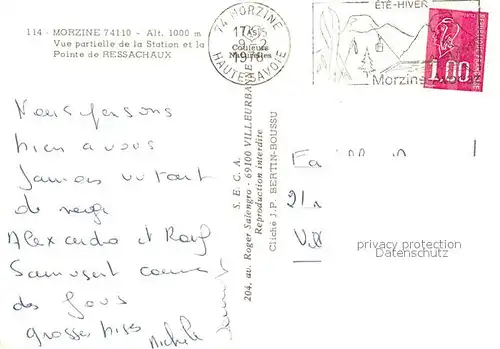 114 - MORZINE 74110 - Alt. 1000 m
Vue partielle de la Station et la
Pointe de RESSACHAUX
74 MORZINE
17H
HAUTE-SAVOIE
Couleurs
Naturelles
ÉTÉ-HIVER
Morzine
1.00
Nous pensons
bien a vous
Jamais vu tant
de neige
Alexandra et
S'amusent comme
des fous
grosses bises
Michèle
S.E.C.A.
204, av. Roger Salengro - 69100 VILLEURBANNE
Reproduction interdite
Cliché J.P. BERTIN-BOUSSU
21
privacy protection
Datenschutz